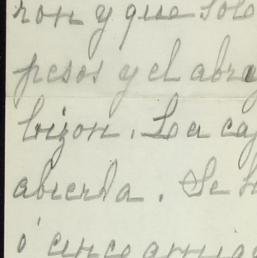 ron y que sole
pesos y el abr
bizon. La caj
abierta. Se h
ó cinco amigo